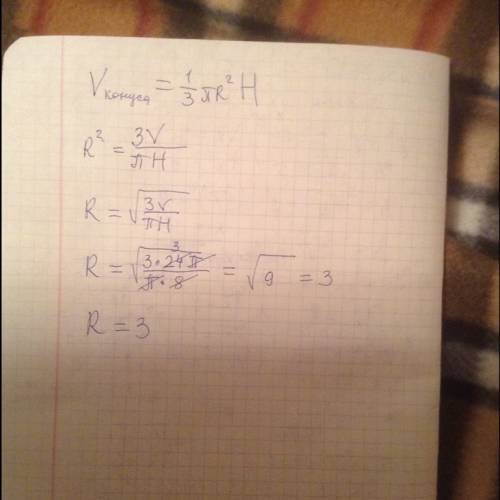 V конуса = 1/3 πR² H
R² = 3V/πH
R = √(3V/πH)
R = √(3·24π/π·8) 3 = √9 = 3
R = 3